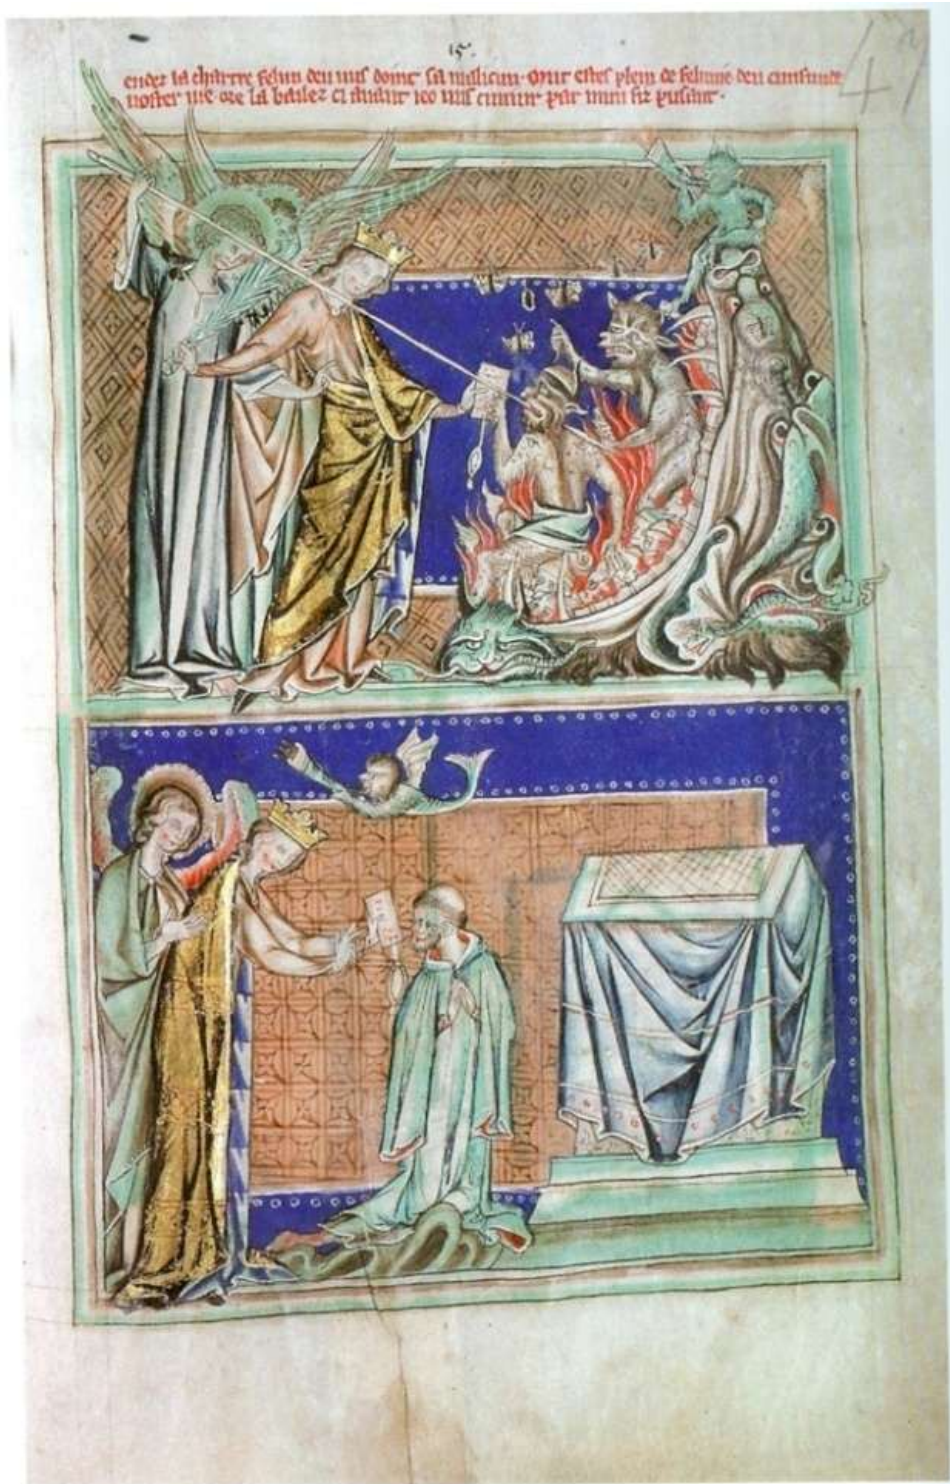 15.
endez la chartre felun deu uus doint sa maliciun· mut estes plein de felunie deu cunfunde
uoster uie ore la bailez ci auant ieo uus cumant par mun fiz pusant·